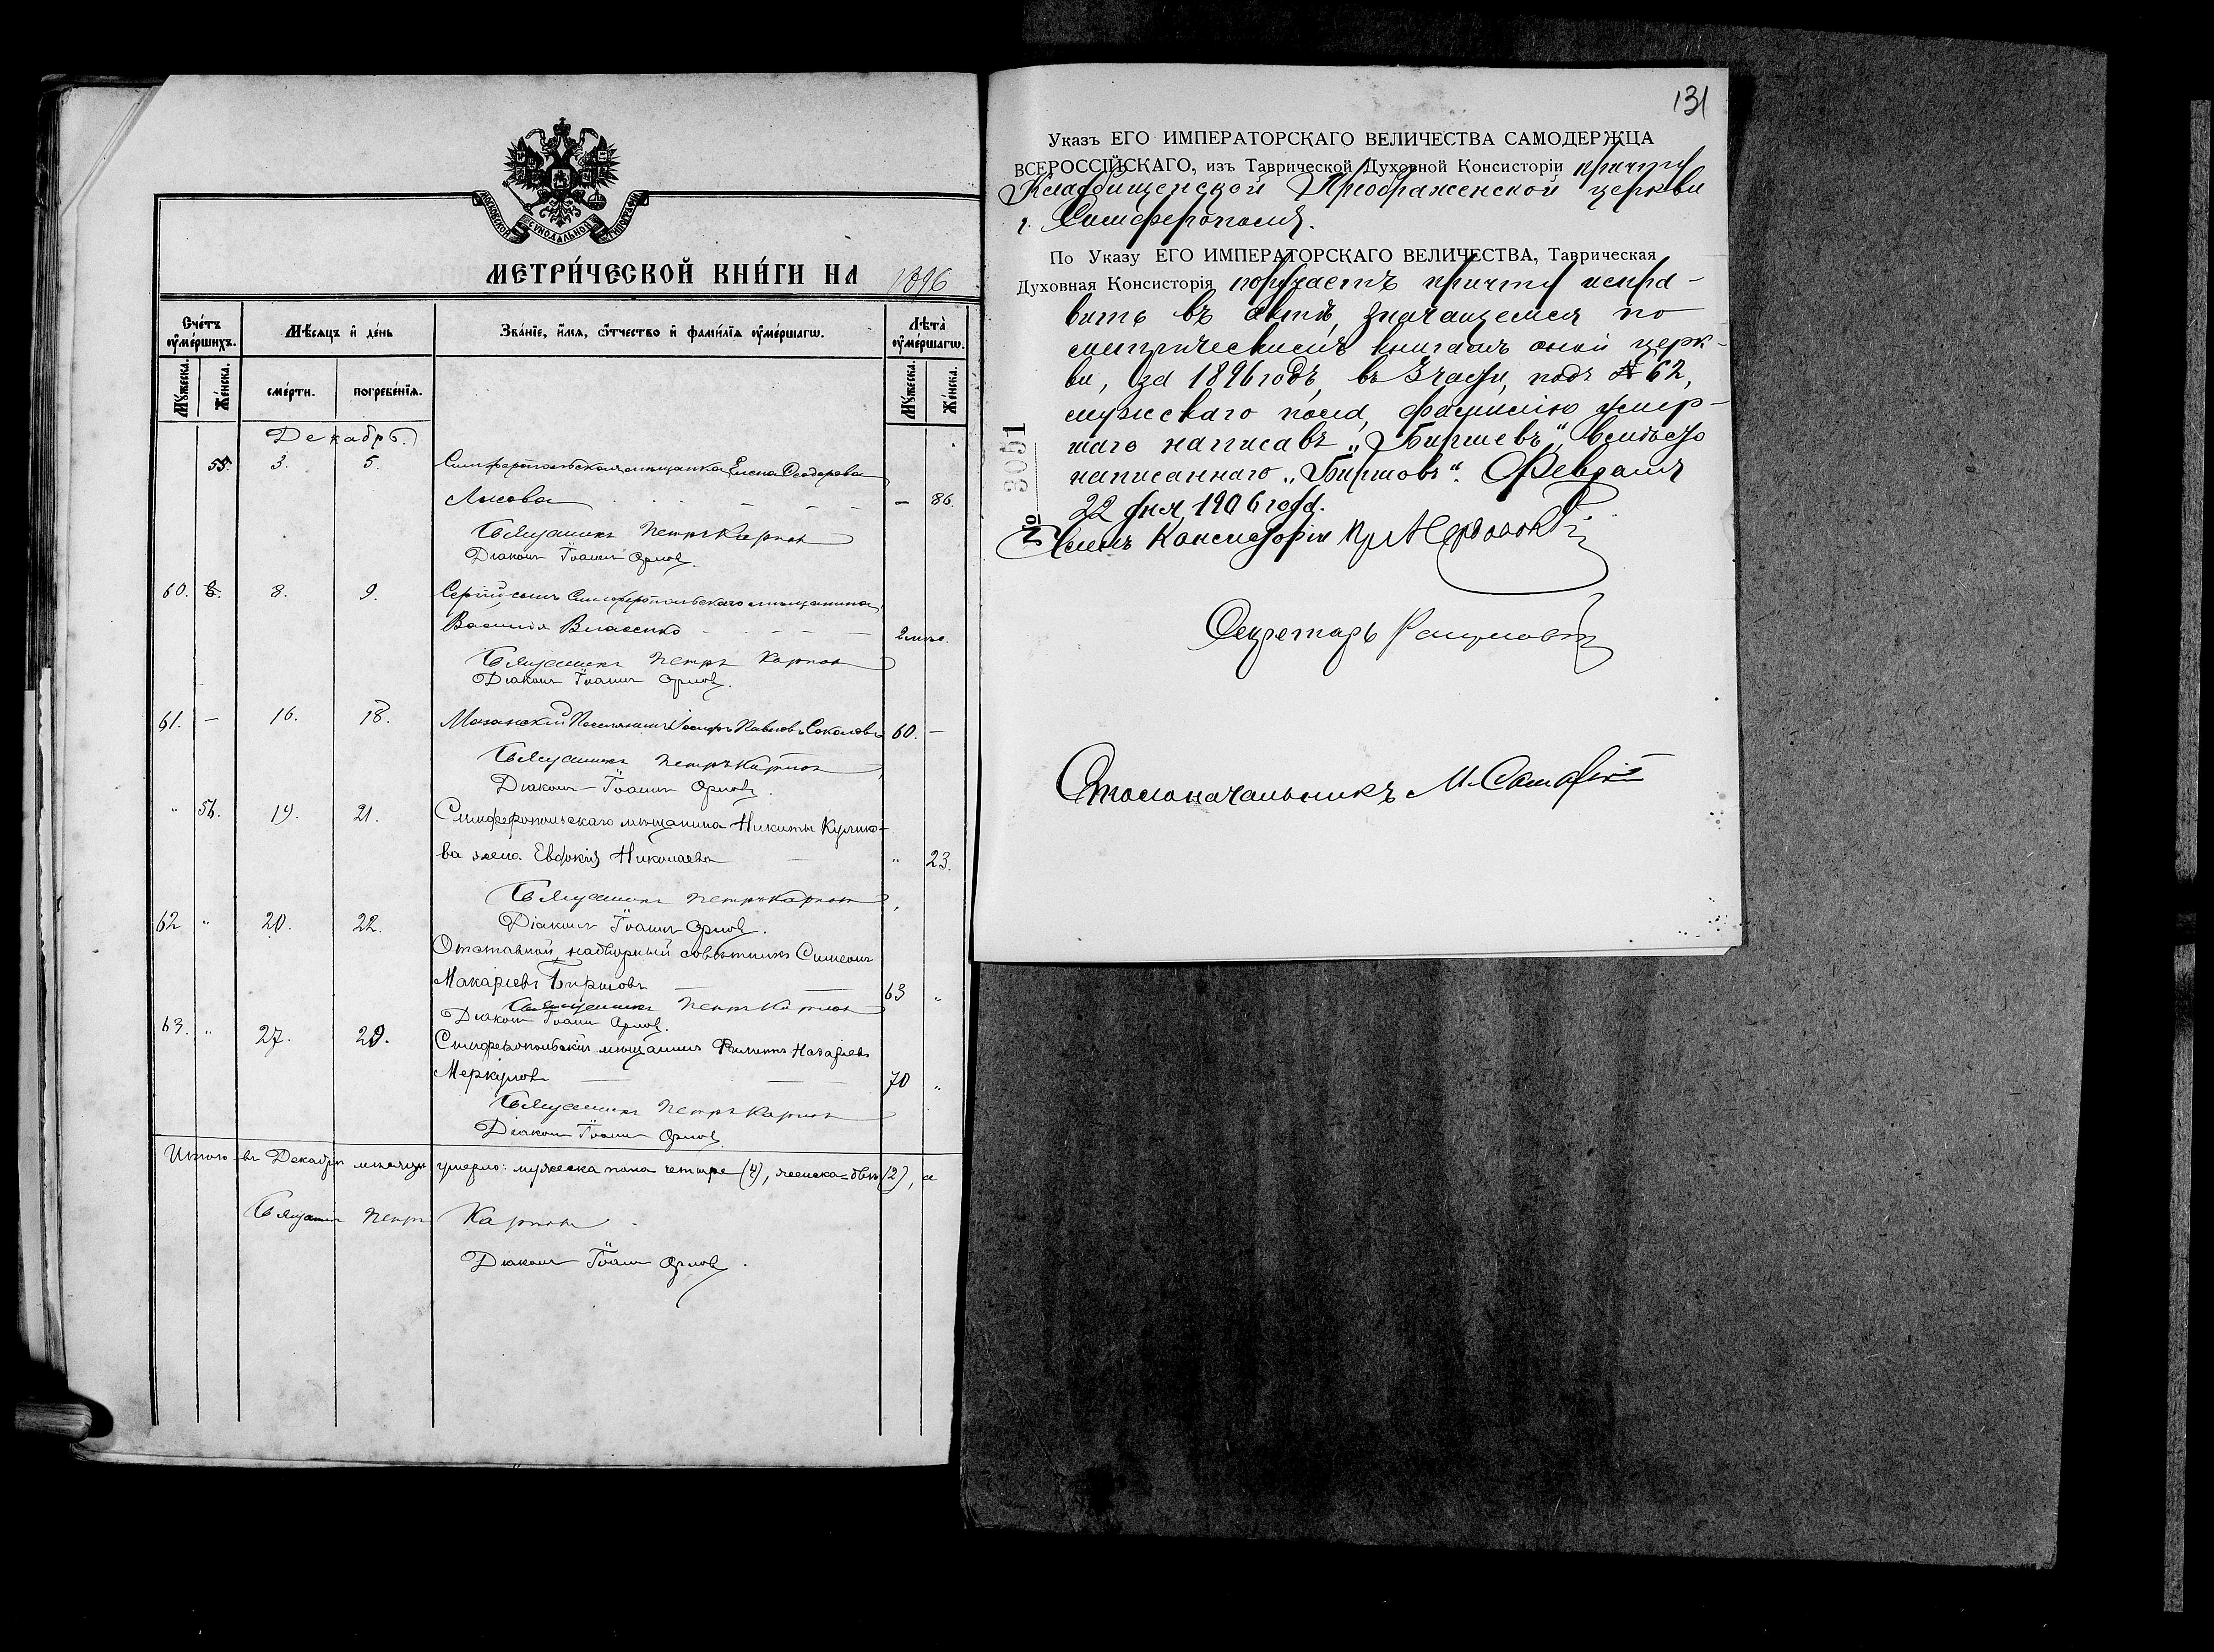 МОСКОВСКОЙ СѴНОДАЛЬНОЙ ТИПОГРАФІИ
МЕТРИ́ЧЕСКОЙ КНИ́ГИ НА 1896
Сче́тъ ᲂу҆ме́ршихъ.
Мѣ́сяцъ и҆ де́нь
Зва́нїе, и҆́мя, ѻ҆́тчество и҆ фами́лїя ᲂу҆ме́ршагѡ.
Лѣта̀ ᲂу҆ме́ршагѡ.
Мꙋ́жеска. Же́нска.
сме́рти. погребе́нїя.
Мꙋ́жеска. Же́нска.
Декабрь.
55. 3. 5. Симферопольская мѣщанка Елена Ѳеодорова
Лысова — 86.
Священникъ Петръ Карпов
Діаконъ Іоаннъ Орловъ.
60. 8. 9. Сергій сынъ Симферопольскаго мѣщанина
Василія Власенко 2 мѣс.
Священникъ Петръ Карпов
Діаконъ Іоаннъ Орловъ.
61. — 16. 18. Мазанскій Поселянинъ Іосифъ Павловъ Соколовъ 60. —
Священникъ Петръ Карпов
Діаконъ Іоаннъ Орловъ.
" 56. 19. 21. Симферопольскаго мѣщанина Никиты Кулико-
ва жена Евдокія Николаева " 23.
Священникъ Петръ Карпов
62 " 20. 22. Діаконъ Іоаннъ Орловъ.
Отставной надворный совѣтникъ Симеонъ
Макаріевъ Биршовъ 63 "
Священникъ Петръ Карпов
Діаконъ Іоаннъ Орловъ.
63. " 27. 29. Симферопольскій мѣщанинъ Филиппъ Назаріевъ
Меркуловъ 70 "
Священникъ Петръ Карпов
Діаконъ Іоаннъ Орловъ.
Итого въ Декабрѣ мѣсяцѣ умерло: мужеска пола четыре (4), женска = двѣ (2), а
Священникъ Петръ Карпов
Діаконъ Іоаннъ Орловъ.
131
Указъ ЕГО ИМПЕРАТОРСКАГО ВЕЛИЧЕСТВА САМОДЕРЖЦА
ВСЕРОССІЙСКАГО, изъ Таврической Духовной Консисторіи причту
Кладбищенской Преображенской церкви
г. Симферополя.
По Указу ЕГО ИМПЕРАТОРСКАГО ВЕЛИЧЕСТВА, Таврическая
Духовная Консисторія поручаетъ причту испра-
вить въ актѣ, значащемся по
метрическимъ книгамъ оной церк-
ви, за 1896 годъ, въ 3 части, подъ № 62,
мужскаго пола, фамилію умер-
шаго написавъ „Биршевъ", вмѣсто
написаннаго „Биршовъ". Февраля
22 дня 1906 года.
№ 3051
Членъ Консисторіи
Секретарь
Столоначальникъ М.